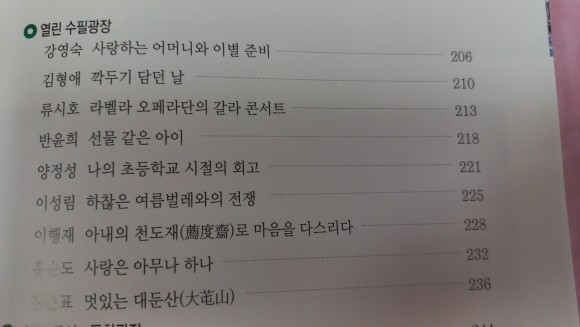 열린 수필광장
강영숙 사랑하는 어머니와 이별 준비 206
김형애 깍두기 담던 날 210
류시호 라벨라 오페라단의 갈라 콘서트 213
반윤희 선물 같은 아이 218
양정성 나의 초등학교 시절의 회고 221
이성림 하찮은 여름벌레와의 전쟁 225
이행재 아내의 천도재(薦度齋)로 마음을 다스리다 228
사랑은 아무나 하나 232
멋있는 대둔산(大芚山) 236